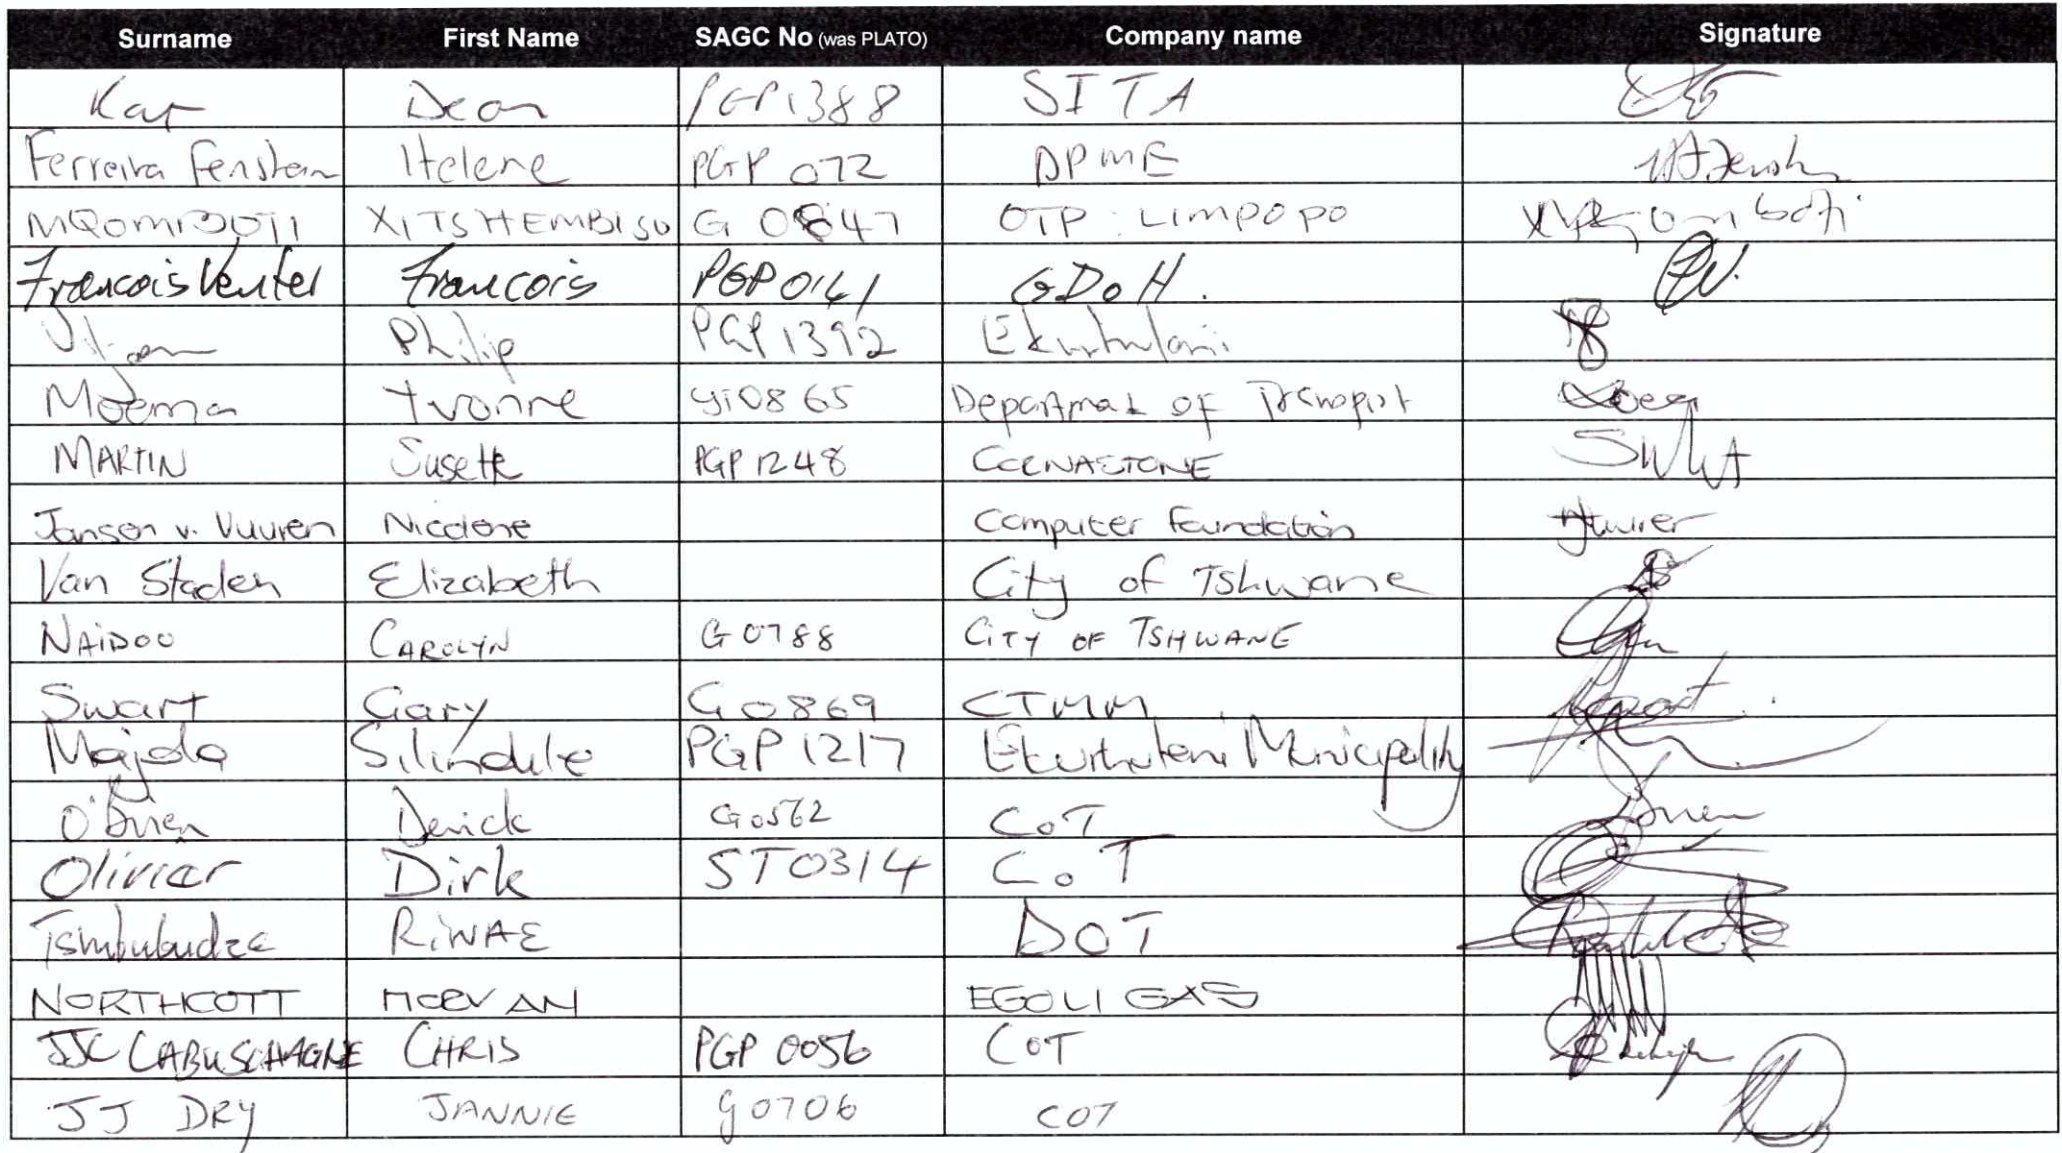 Surname First Name SAGC No (was PLATO) Company name Signature
Dean PGP1388 SITA
Ferreira Fenstein Helene PGP 072 DPME
MQOMBOTI XITSHEMBISO G 0847 OTP: LIMPOPO
Francois Venter Francois PGP0141 GDoH. FV.
Philip PGP1392 Ekurhuleni
Moema Yvonne 0865 Department of Transport
MARTIN Susette PGP1248
Jansen v. Vuuren Nicolene Computer Foundation
Van Staden Elizabeth City of Tshwane
NAIDOO CAROLYN G0788 CITY OF TSHWANE
Swart Gary G0869 CTMM
Majola Silindile PGP1217 Ekurhuleni Municipality
O'Brien Derick G0562 CoT
Olivier Dirk ST0314 CoT
RiWAE DOT
NORTHCOTT EGOLI GAS
JJC LABUSCHAGNE CHRIS PGP 0056 COT
JJ DRY JANNIE G0706 COT